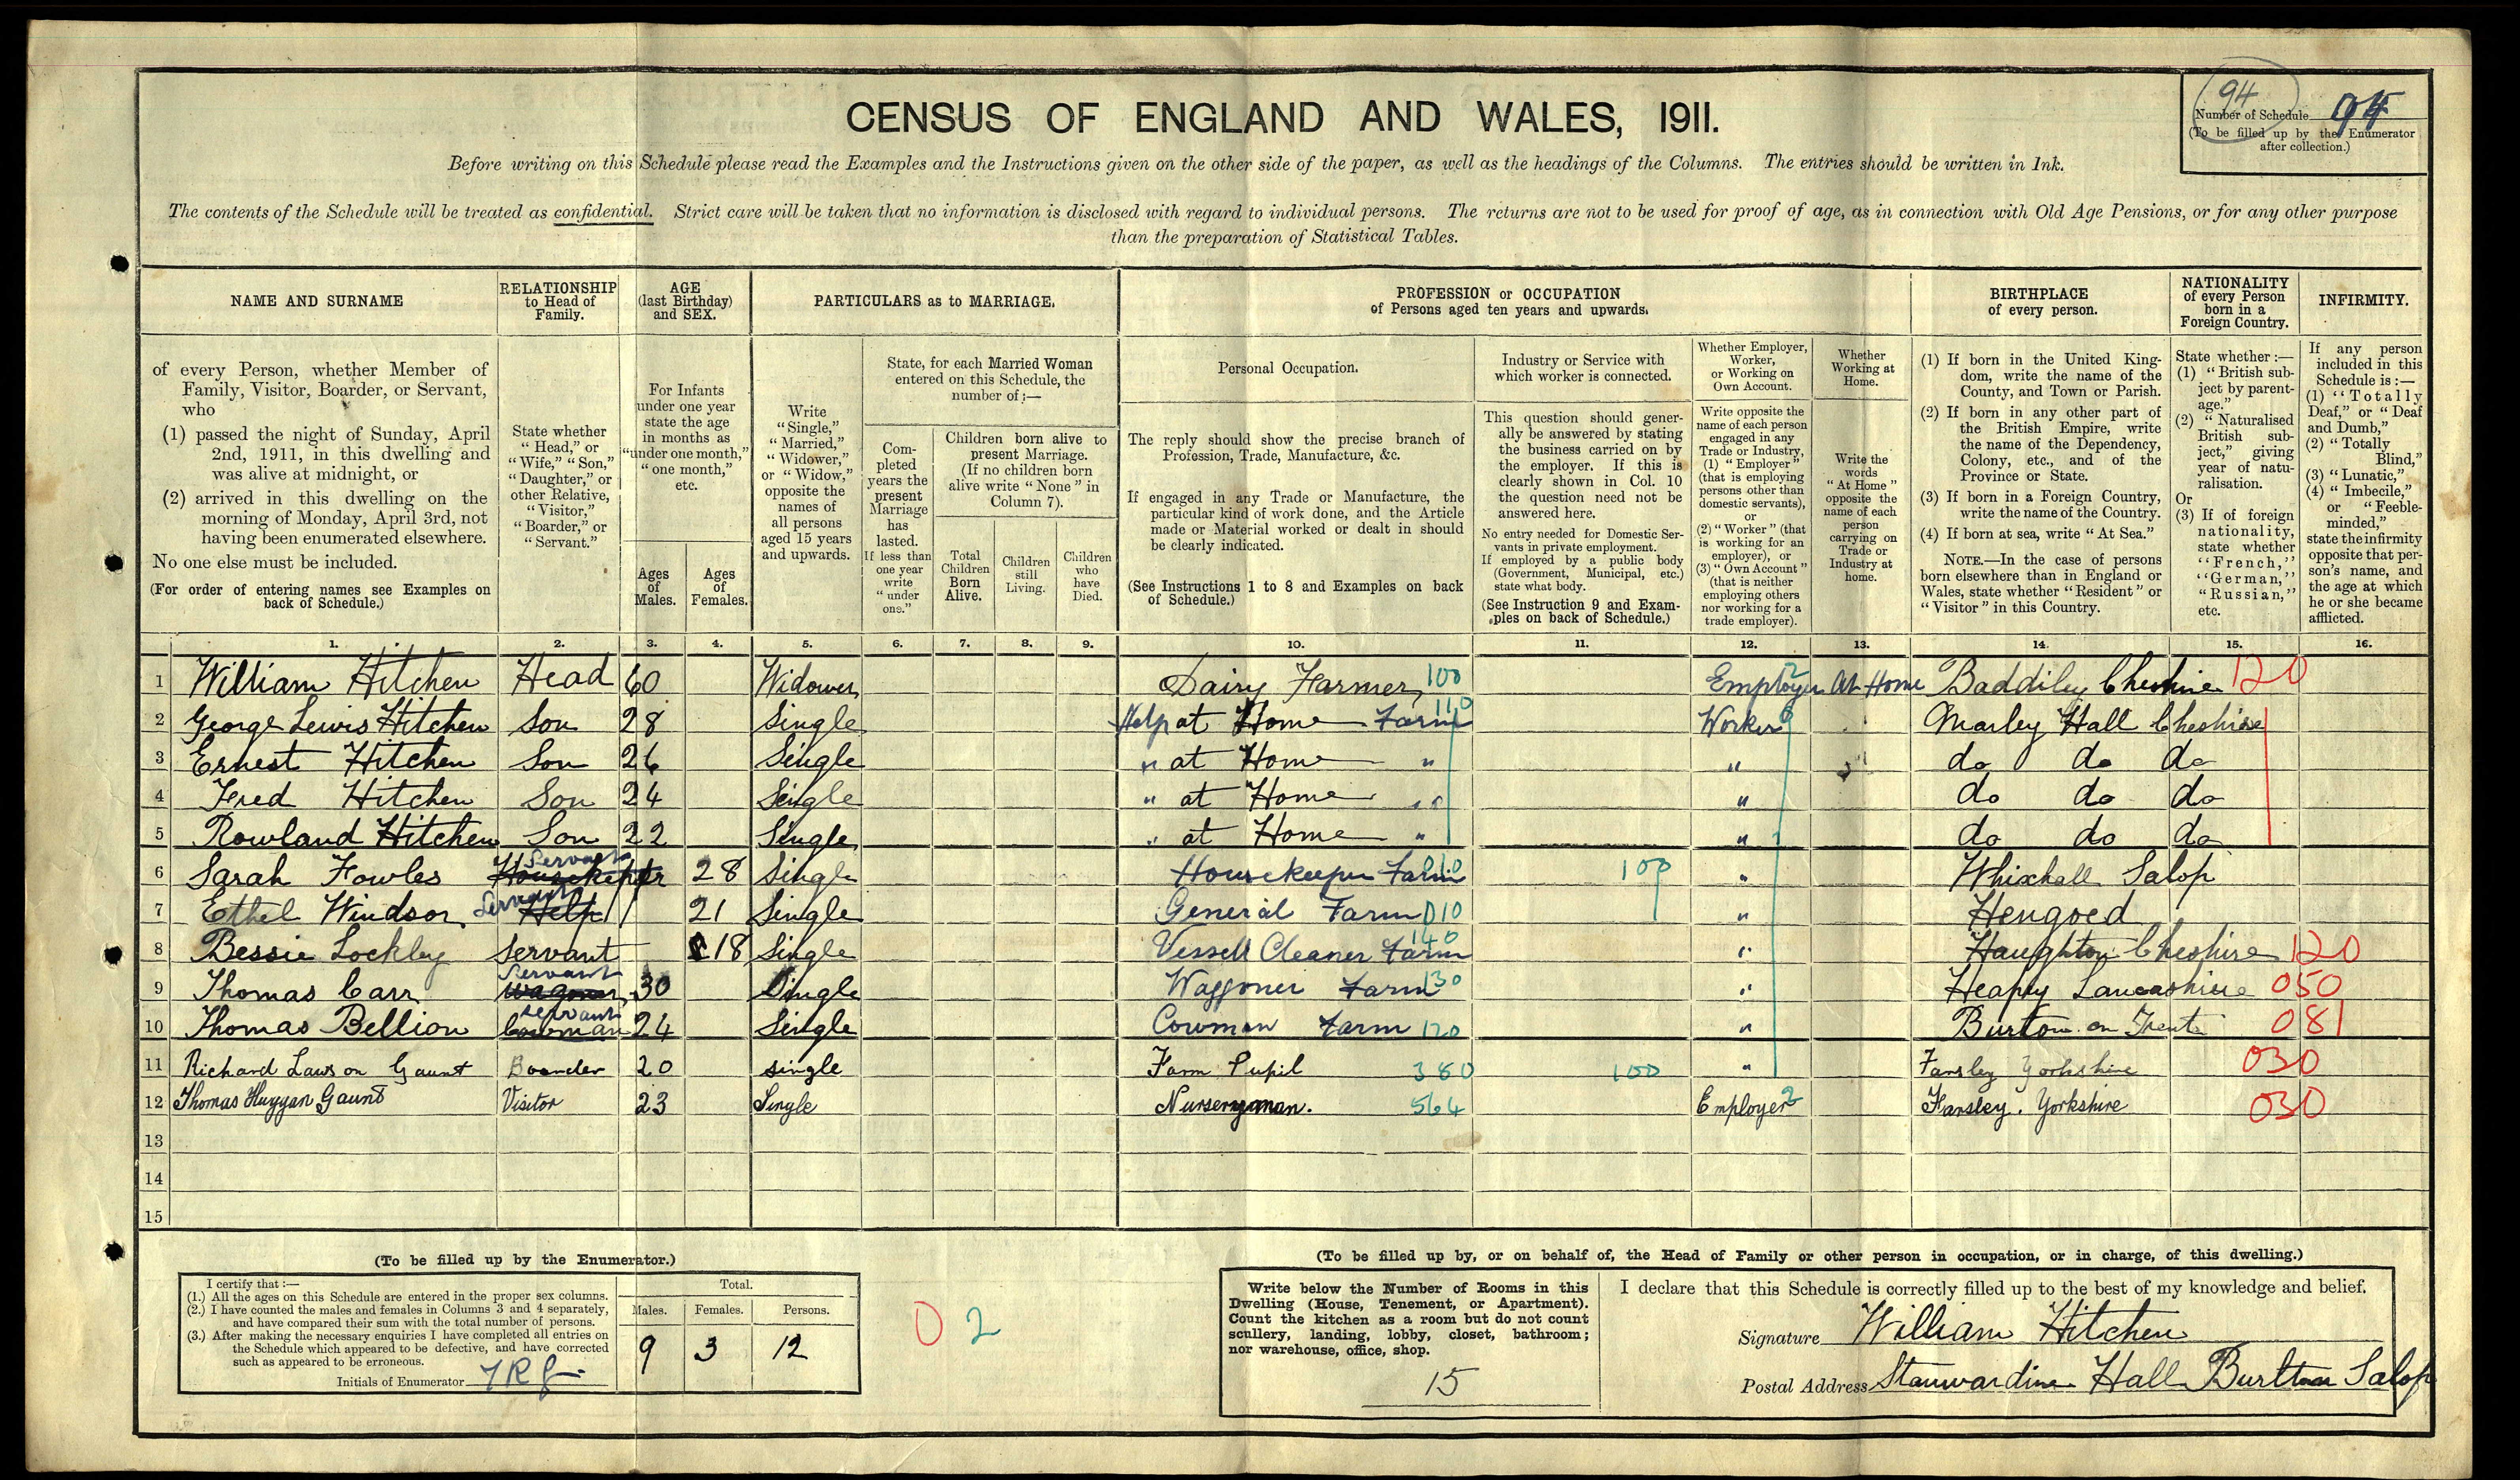 CENSUS OF ENGLAND AND WALES, 1911.
94
Number of Schedule 94
(To be filled up by the Enumerator
after collection.)
Before writing on this Schedule please read the Examples and the Instructions given on the other side of the paper, as well as the headings of the Columns. The entries should be written in Ink.
The contents of the Schedule will be treated as confidential. Strict care will be taken that no information is disclosed with regard to individual persons. The returns are not to be used for proof of age, as in connection with Old Age Pensions, or for any other purpose
than the preparation of Statistical Tables.
NAME AND SURNAME
of every Person, whether Member of
Family, Visitor, Boarder, or Servant,
who
(1) passed the night of Sunday, April
2nd, 1911, in this dwelling and
was alive at midnight, or
(2) arrived in this dwelling on the
morning of Monday, April 3rd, not
having been enumerated elsewhere.
No one else must be included.
(For order of entering names see Examples on
back of Schedule.)
RELATIONSHIP
to Head of
Family.
State whether
"Head," or
"Wife," "Son,"
"Daughter," or
other Relative,
"Visitor,"
"Boarder," or
"Servant."
AGE
(last Birthday)
and SEX.
For Infants
under one year
state the age
in months as
"under one month,"
"one month,"
etc.
Ages
of
Males.
Ages
of
Females.
PARTICULARS as to MARRIAGE.
Write
"Single,"
"Married,"
"Widower,"
or "Widow,"
opposite the
names of
all persons
aged 15 years
and upwards.
State, for each Married Woman
entered on this Schedule, the
number of:—
Com-
pleted
years the
present
Marriage
has
lasted.
If less than
one year
write
"under
one."
Children born alive to
present Marriage.
(If no children born
alive write "None" in
Column 7).
Total
Children
Born
Alive.
Children
still
Living.
Children
who
have
Died.
PROFESSION or OCCUPATION
of Persons aged ten years and upwards.
Personal Occupation.
The reply should show the precise branch of
Profession, Trade, Manufacture, &c.
If engaged in any Trade or Manufacture, the
particular kind of work done, and the Article
made or Material worked or dealt in should
be clearly indicated.
(See Instructions 1 to 8 and Examples on back
of Schedule.)
Industry or Service with
which worker is connected.
This question should gener-
ally be answered by stating
the business carried on by
the employer. If this is
clearly shown in Col. 10
the question need not be
answered here.
No entry needed for Domestic Ser-
vants in private employment.
If employed by a public body
(Government, Municipal, etc.)
state what body.
(See Instruction 9 and Exam-
ples on back of Schedule.)
Whether Employer,
Worker,
or Working on
Own Account.
Write opposite the
name of each person
engaged in any
Trade or Industry,
(1) "Employer"
(that is employing
persons other than
domestic servants),
or
(2) "Worker" (that
is working for an
employer), or
(3) "Own Account"
(that is neither
employing others
nor working for a
trade employer).
Whether
Working at
Home.
Write the
words
"At Home"
opposite the
name of each
person
carrying on
Trade or
Industry at
home.
BIRTHPLACE
of every person.
(1) If born in the United King-
dom, write the name of the
County, and Town or Parish.
(2) If born in any other part of
the British Empire, write
the name of the Dependency,
Colony, etc., and of the
Province or State.
(3) If born in a Foreign Country,
write the name of the Country.
(4) If born at sea, write "At Sea."
NOTE.—In the case of persons
born elsewhere than in England or
Wales, state whether "Resident" or
"Visitor" in this Country.
NATIONALITY
of every Person
born in a
Foreign Country.
State whether:—
(1) "British sub-
ject by parent-
age."
(2) "Naturalised
British sub-
ject," giving
year of natu-
ralisation.
Or
(3) If of foreign
nationality,
state whether
"French,"
"German,"
"Russian,"
etc.
INFIRMITY.
If any person
included in this
Schedule is:—
(1) "Totally
Deaf," or "Deaf
and Dumb,"
(2) "Totally
Blind,"
(3) "Lunatic,"
(4) "Imbecile,"
or "Feeble-
minded,"
state the infirmity
opposite that per-
son's name, and
the age at which
he or she became
afflicted.
1. 2. 3. 4. 5. 6. 7. 8. 9. 10. 11. 12. 13. 14. 15. 16.
1 William Hitchen Head 60 Widower Dairy Farmer 100 Employer 2 At Home Baddiley Cheshire 120
2 George Lewis Hitchen Son 28 Single Help at Home Farm 110 Worker 6 Marley Hall Cheshire
3 Ernest Hitchen Son 26 Single " at Home " " do do do
4 Fred Hitchen Son 24 Single " at Home " " do do do
5 Rowland Hitchen Son 22 Single " at Home " " do do do
6 Sarah Fowles Housekeeper Servant 28 Single Housekeeper Farm 010 100 " Whixhall Salop
7 Ethel Windsor Servant Help 21 Single General Farm 010 " Hengoed
8 Bessie Lockley Servant 18 Single Vessell Cleaner Farm 140 " Haughton Cheshire 120
9 Thomas Carr Servant Wagoner 30 Single Waggoner Farm 130 " Heapey Lancashire 050
10 Thomas Bellion Servant Cowman 24 Single Cowman Farm 120 " Burton on Trent 081
11 Richard Lawson Gaunt Boarder 20 single Farm Pupil 380 100 " Farsley Yorkshire 030
12 Thomas Huggan Gaunt Visitor 23 Single Nurseryman. 564 Employer 2 Farsley. Yorkshire 030
13
14
15
(To be filled up by the Enumerator.)
I certify that:—
(1.) All the ages on this Schedule are entered in the proper sex columns.
(2.) I have counted the males and females in Columns 3 and 4 separately,
and have compared their sum with the total number of persons.
(3.) After making the necessary enquiries I have completed all entries on
the Schedule which appeared to be defective, and have corrected
such as appeared to be erroneous.
Initials of Enumerator
Total.
Males. Females. Persons.
9 3 12
0 2
(To be filled up by, or on behalf of, the Head of Family or other person in occupation, or in charge, of this dwelling.)
Write below the Number of Rooms in this
Dwelling (House, Tenement, or Apartment).
Count the kitchen as a room but do not count
scullery, landing, lobby, closet, bathroom;
nor warehouse, office, shop.
15
I declare that this Schedule is correctly filled up to the best of my knowledge and belief.
Signature William Hitchen
Postal Address Stanwardine Hall Burlton Salop